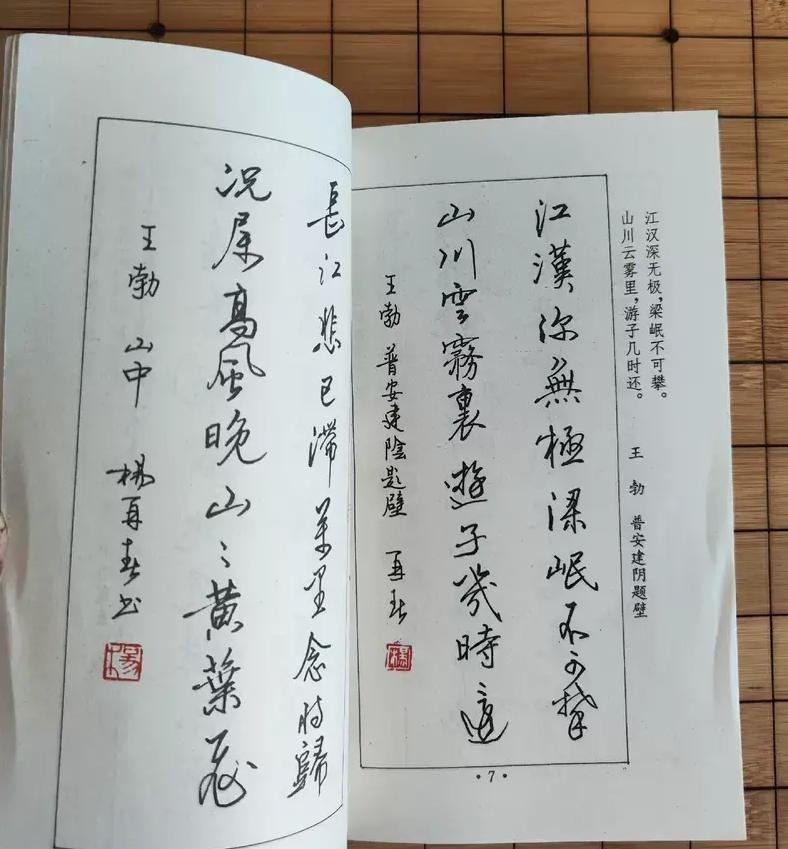 長江悲已滯萬里念将歸
况屬高風晚山〻黄葉飛
王勃 山中 楊再春书
江漢深無極梁岷不可攀
山川雲霧裏遊子幾時還
王勃 普安建陰題壁 再春
江汉深无极，梁岷不可攀。
山川云雾里，游子几时还。
王勃 普安建阴题壁
·7·